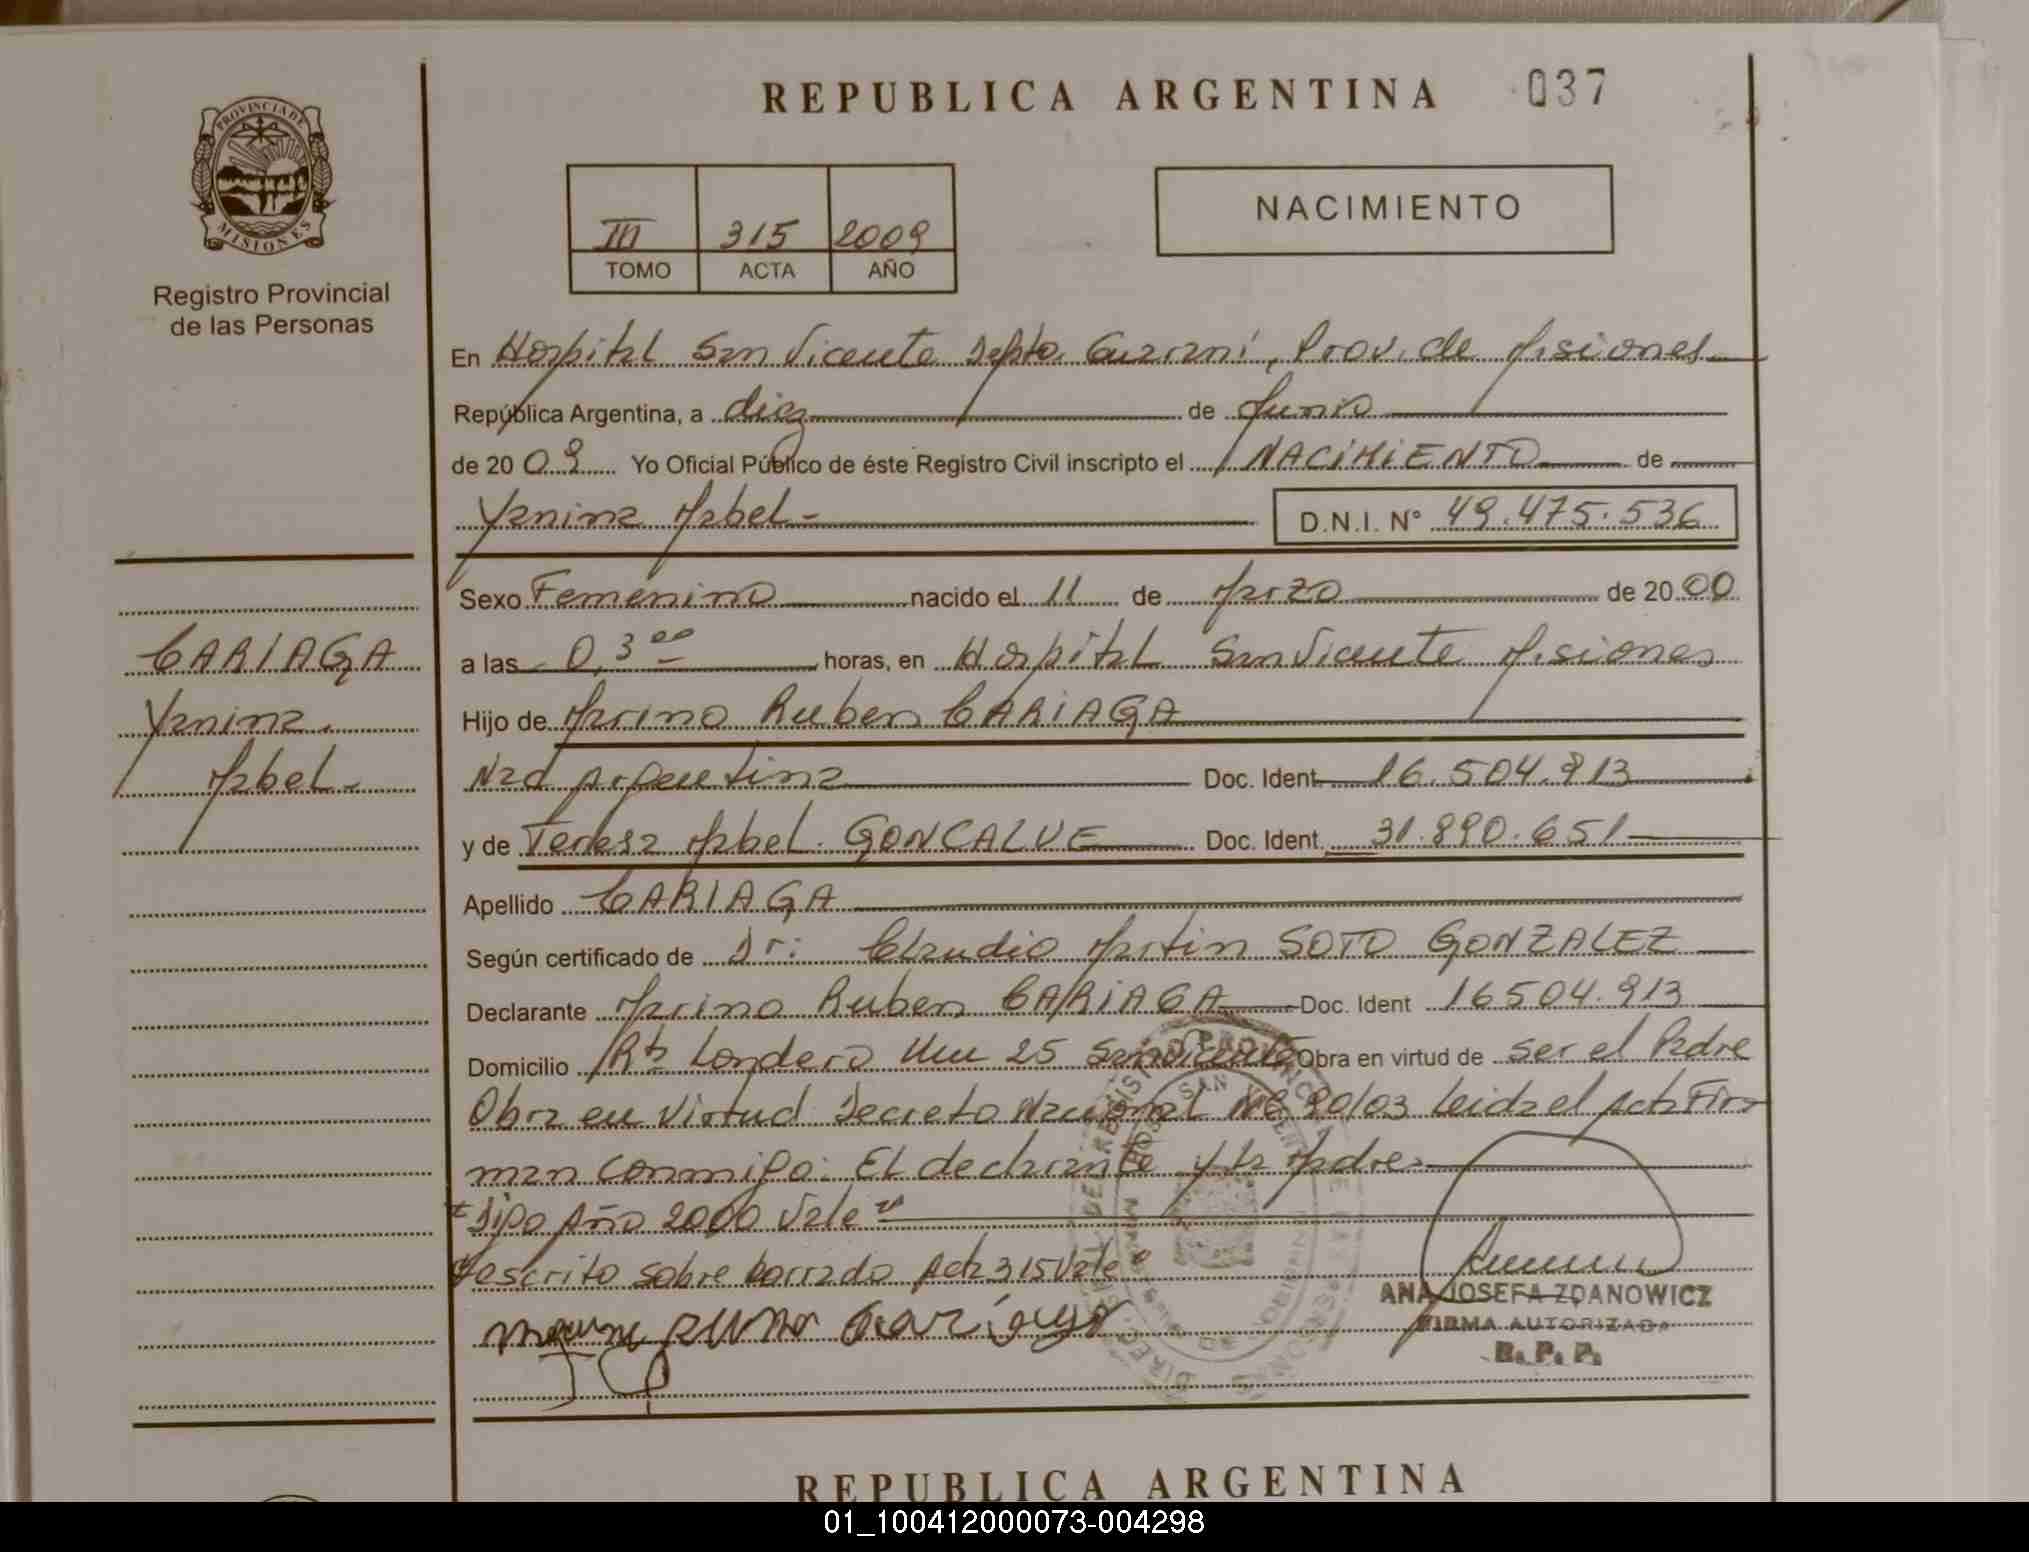 REPUBLICA ARGENTINA 037
PROVINCIA DE
MISIONES
Registro Provincial
de las Personas
III 315 2009
TOMO ACTA AÑO
NACIMIENTO
En Hospital San Vicente Depto Guarani, Prov. de Misiones
República Argentina, a diez de Junio
de 2009 Yo Oficial Público de éste Registro Civil inscripto el NACIMIENTO de
Yanina Mabel- D.N.I. N° 49.475.536
Sexo Femenino nacido el 11 de Marzo de 2000
a las 0,3 00 horas, en Hospital San Vicente Misiones
Hijo de Marino Ruben CARIAGA
Nac Argentina Doc. Ident. 16.504.913
y de Teresa Mabel GONCALVE Doc. Ident. 31.890.651
Apellido CARIAGA
Según certificado de Dr: Claudio Martin SOTO GONZALEZ
Declarante Marino Ruben CARIAGA Doc. Ident 16504.913
Domicilio Rta Londero Km 25 San Vicente Obra en virtud de ser el Padre
Obra en Virtud Decreto Nacional Nº 90/03 leida el Acta Fir
man conmigo: El declarante y la Madre
Digo Año 2000 Vale"
escrito sobre borrado Acta 315 Vale"
ANA JOSEFA ZDANOWICZ
FIRMA AUTORIZADA
R. P. P.
CARIAGA
Yanina
Mabel-
REPUBLICA ARGENTINA
01_100412000073-004298